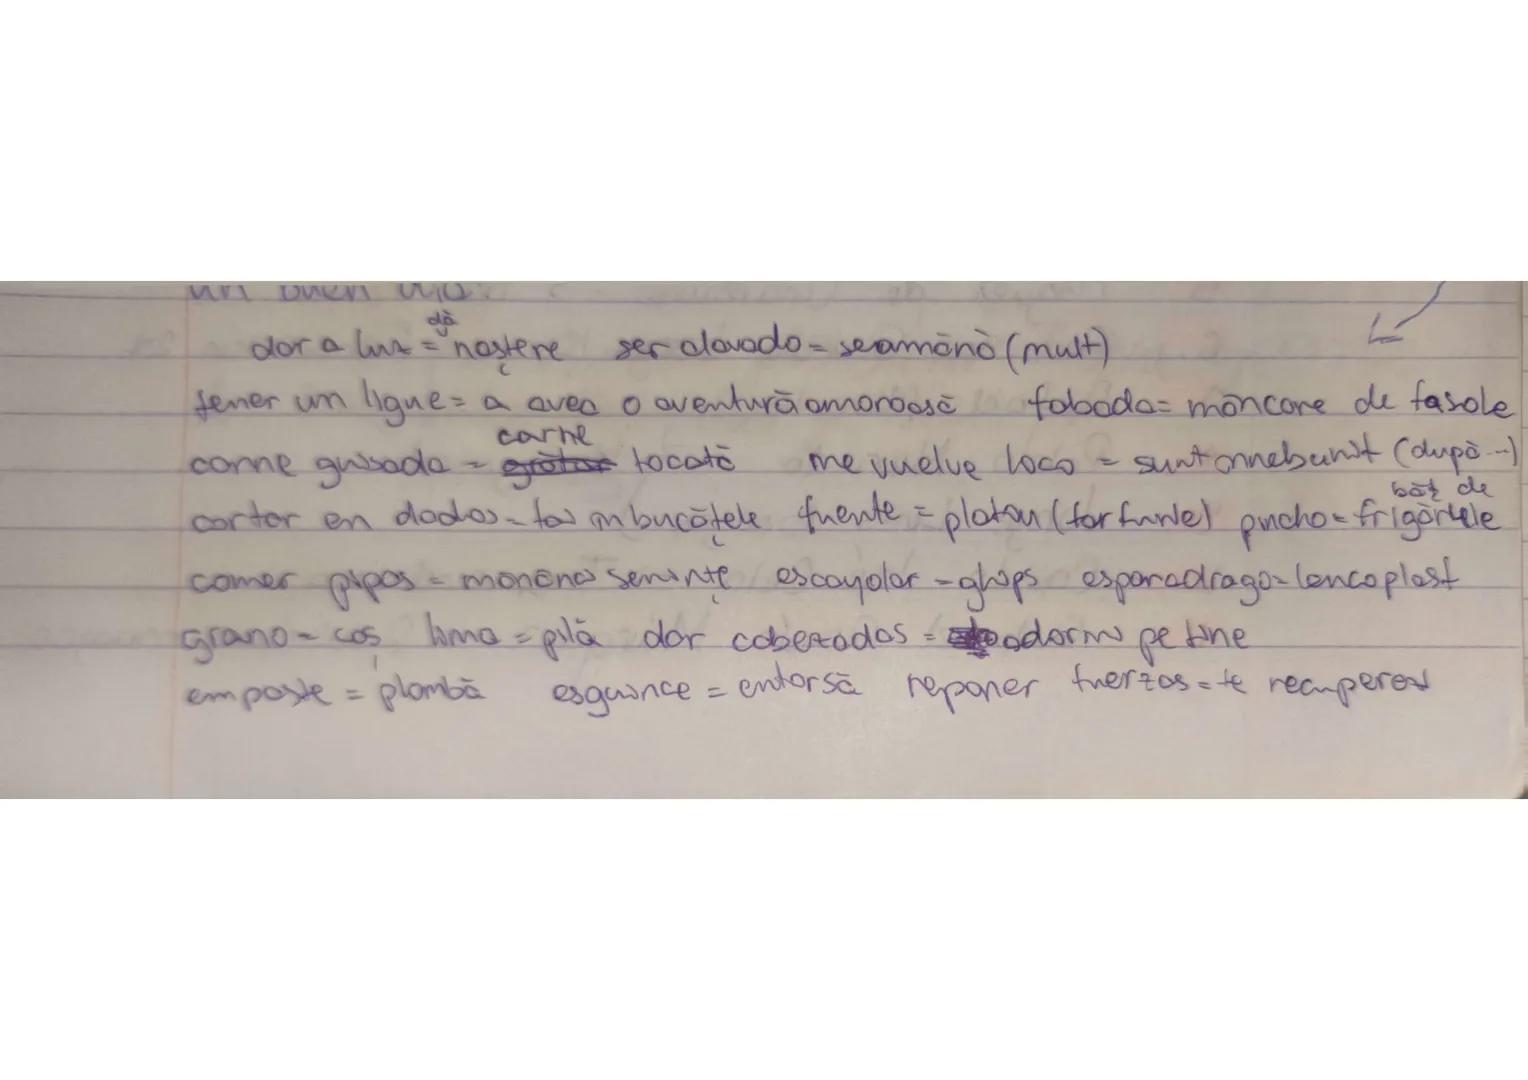 un buen
dar a luz = dă naștere ser clavado = seamănă (mult)
tener un ligue = a avea o aventură amoroasă fabada = mâncare de fasole
carne guisada = carne tocată me vuelve loco = sunt înnebunit (după...)
cortar en dados = tai în bucățele fuente = platou (farfurie) pincho = băț de frigărele
comer pipas = mănânci semințe escayolar = ghips esparadrago = leucoplast
grano = coș lima = pilă dar cabezadas = adormi pe tine
empaste = plombă esguince = entorsă reponer fuerzas = te recuperezi